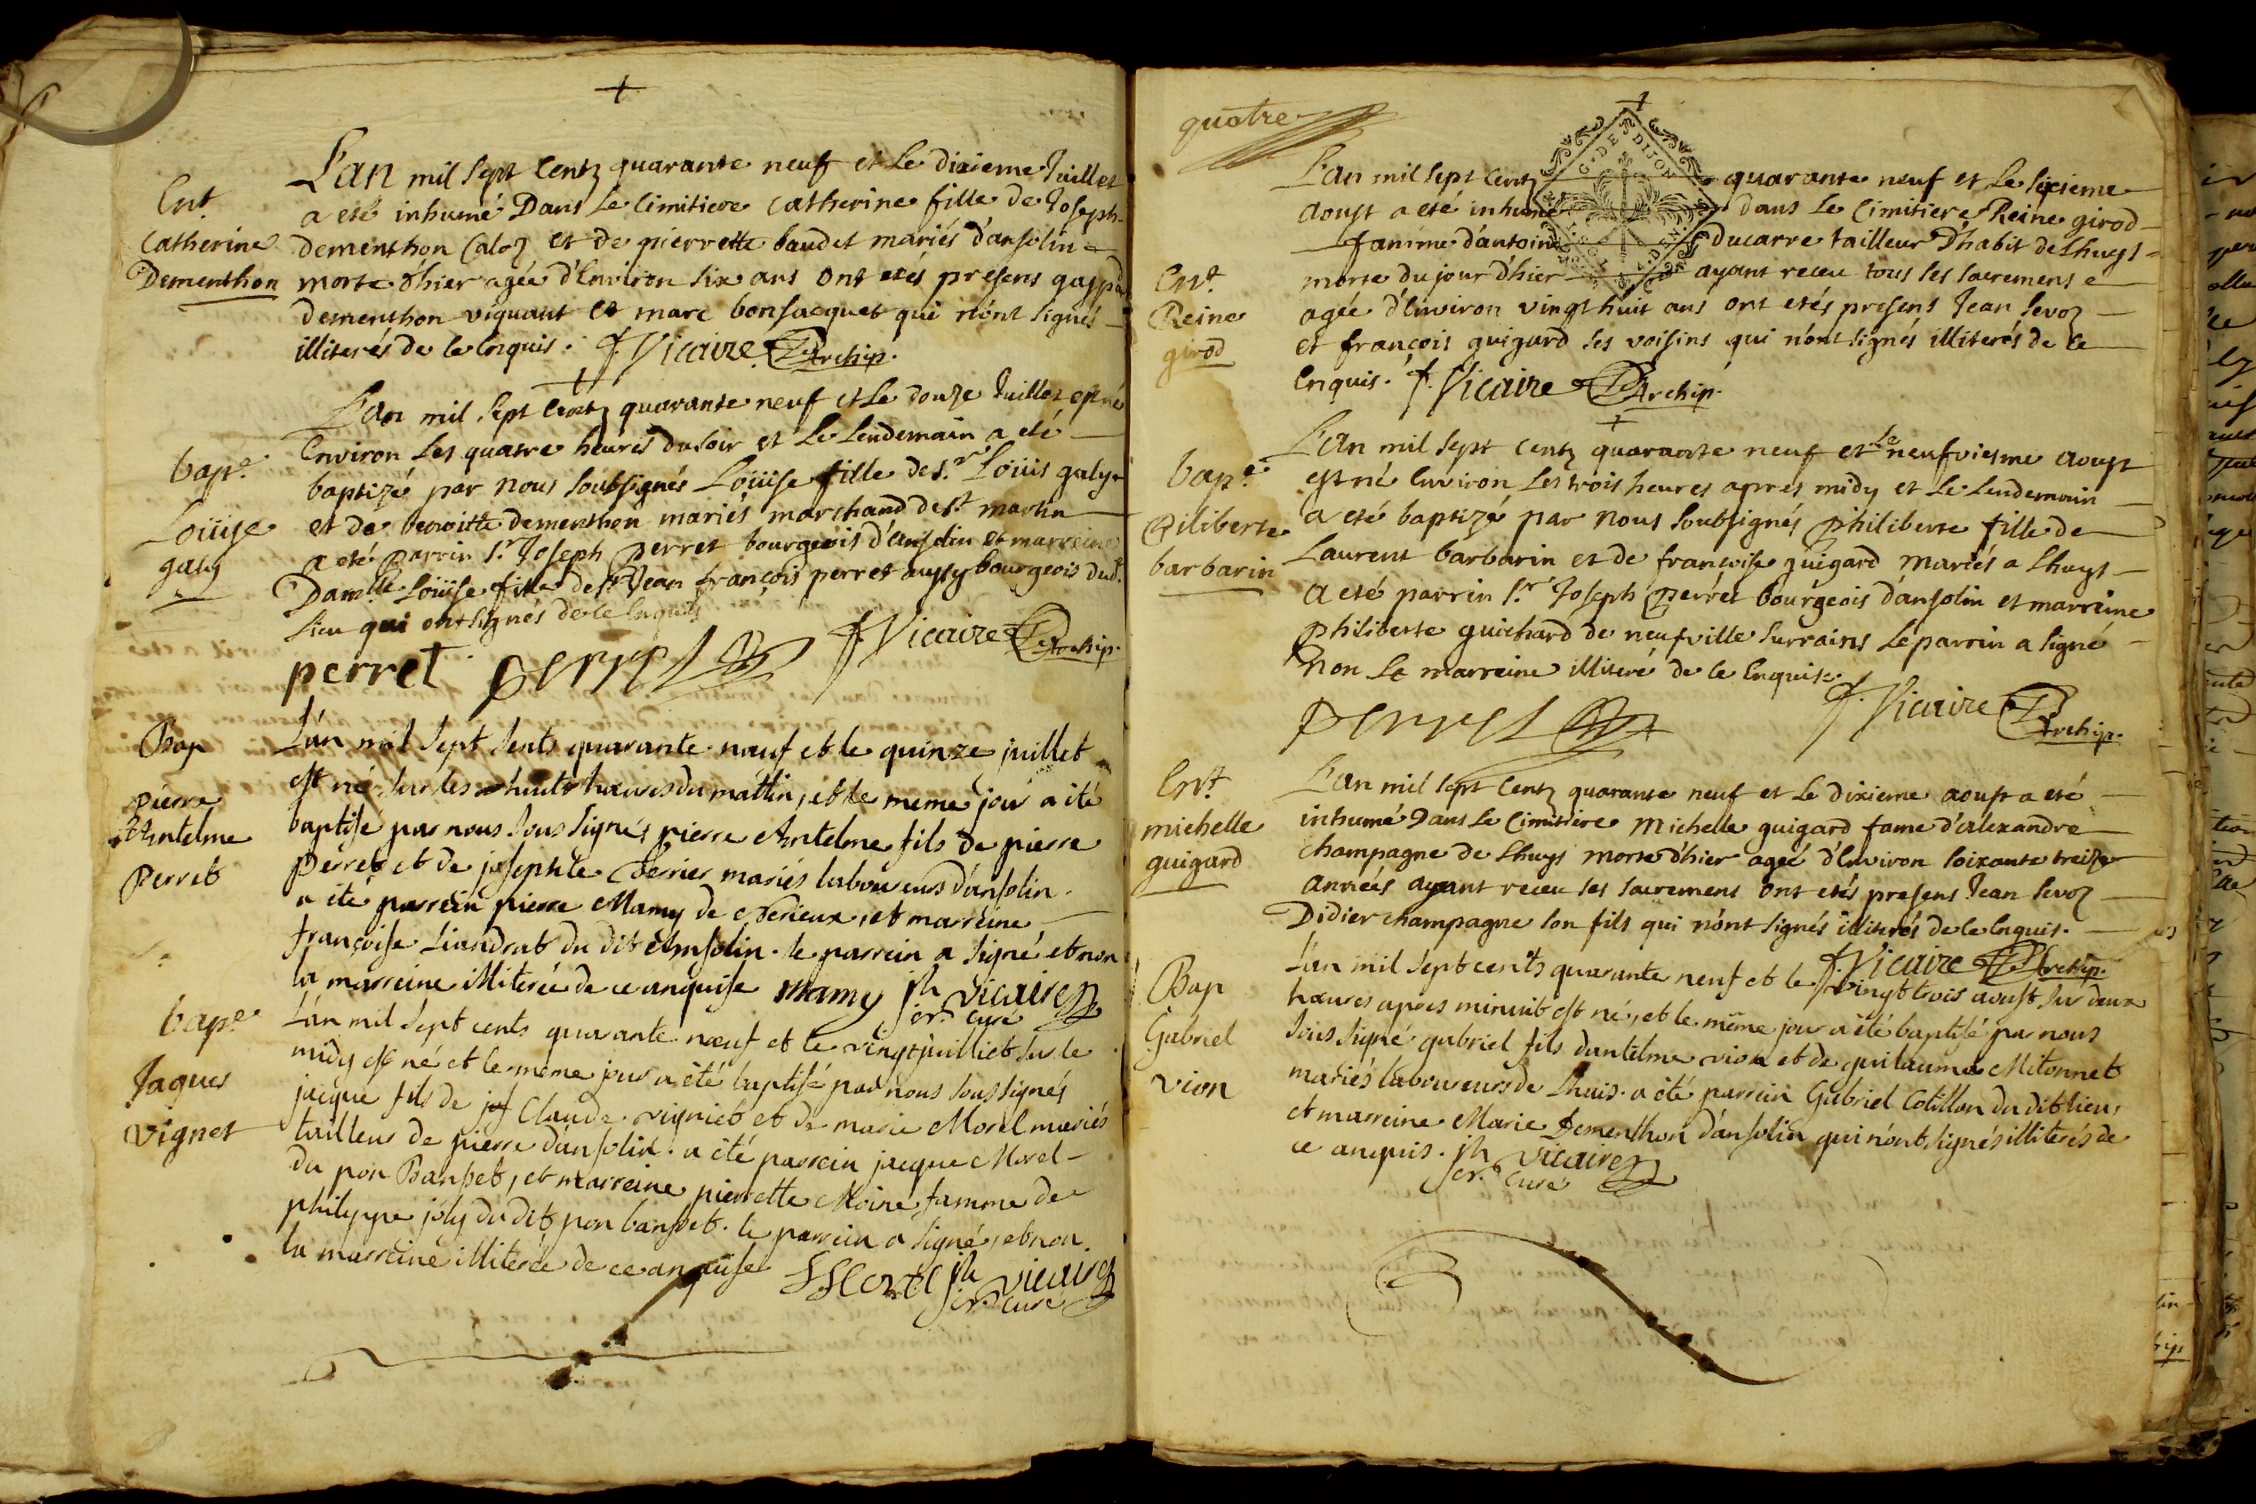 Ent.
Catherine
Dementhon
L'an mil sept centz quarante neuf et le dixieme Juillet
a eté inhumé Dans le cimitiere catherine fille de Joseph
dementhon Caloz et de pierrette baudet mariés d'ansolin
morte d'hier agée d'Environ six ans ont etés presens gaspd
dementhon viquant et marc bonjacquet qui n'ont signés
illiterés de ce Enquis. f. Vicaire Archip.
bap.e
Loüise
galy
L'an mil sept centz quarante neuf et le douze Juillet est né
Environ les quatre heures du soir et le lendemain a eté
baptizé par nous soubsignés Loüise fille de s.r Loüis galy
et de benoitte dementhon mariés marchand de s.t martin
a eté parrin s.r Joseph perret bourgeois d'ansolin et marreine
Dam.lle Loüise fille de s.r Jean françois perret aussy bourgeois dud.
lieu qui ont signés de ce Enquis
perret perret f. Vicaire Archip.
Bap
pierre
Antelme
Perret
L'an mil sept sents quarante nœuf et le quinze juillet
est né sur les huits hœures du mattin, et le meme jour a été
baptisé par nous sous signés pierre Antelme fils de pierre
Perret et de josephte Perrier mariés laboureurs d'ansolin.
a été parrein pierre Mamy de Serieux, et marreine
françoise Liandrat du dit Ansolin. le parrein a signé, et non
la marreine illiterée de ce anquise Mamy jh vicaire
cr. curé
bap.e
Jaques
Vignet
L'an mil sept cents quarante nœuf et le vingt juilliet sur le
midy est né et le meme jour a été baptisé par nous sous signés
jacque fils de Claude vigniet et de marie Morel mariés
tailleur de pierre d'ansolin. a été parrein jacque Morel
du pon Banset, et marreine pierrette Moine famme de
philyppe joly du dit pon banset. le parrein a signé, et non
la marreine illiterée de ce anquise Morel jh vicaire
cr. curé
quatre
Ent.
Reine
girod
G. DE DIJON
L'an mil sept centz quarante neuf et le sixieme
aoust a eté inhumé dans le cimitiere Reine girod
famme d'antoine Ducarre tailleur d'habit de Lhuys
morte du jour d'hier ayant receu tous ses sacremens
agée d'Environ vingt huit ans ont etés presens Jean sevoz
et françois guigard ses voisins qui n'ont signés illiterés de ce
Enquis. f. Vicaire Archip.
bap.e
Piliberte
barbarin
L'an mil sept centz quarante neuf et le neufviesme aoust
est né Environ les trois heures apres midy et le lendemain
a eté baptizé par nous soubsignés philiberte fille de
Laurent barbarin et de françoise guigard mariés a Lhuys
a eté parrin s.r Joseph perret bourgeois d'ansolin et marreine
philiberte guichard de neufville surrains le parrin a signé
non la marreine illiteré de ce Enquise
perret f. Vicaire Archip.
Ent.
michelle
guigard
L'an mil sept centz quarante neuf et le dixieme aoust a eté
inhumé Dans le cimitiere michelle guigard fame d'alexandre
champagne de Lhuys morte d'hier ageé d'Environ soixante treize
anneés ayant receu ses sacremens ont etés presens Jean sevoz
Didier champagne son fils qui n'ont signés illiterés de ce Enquis.
f. Vicaire Archip.
Bap
Gabriel
Vion
L'an mil sept cents quarante neuf et le vingt trois aoust sur deux
hœures apres minuit est né, et le même jour a été baptisé par nous
sous signé gabriel fils d'antelme vion et de guilauma Mitonnet
mariés laboureurs de Lhuis. a été parrein Gabriel Cotillon du dit lieu,
et marreine Marie Dementhon d'ansolin qui n'ont signés illiterés de
ce anquis. jh vicaire
cr. curé